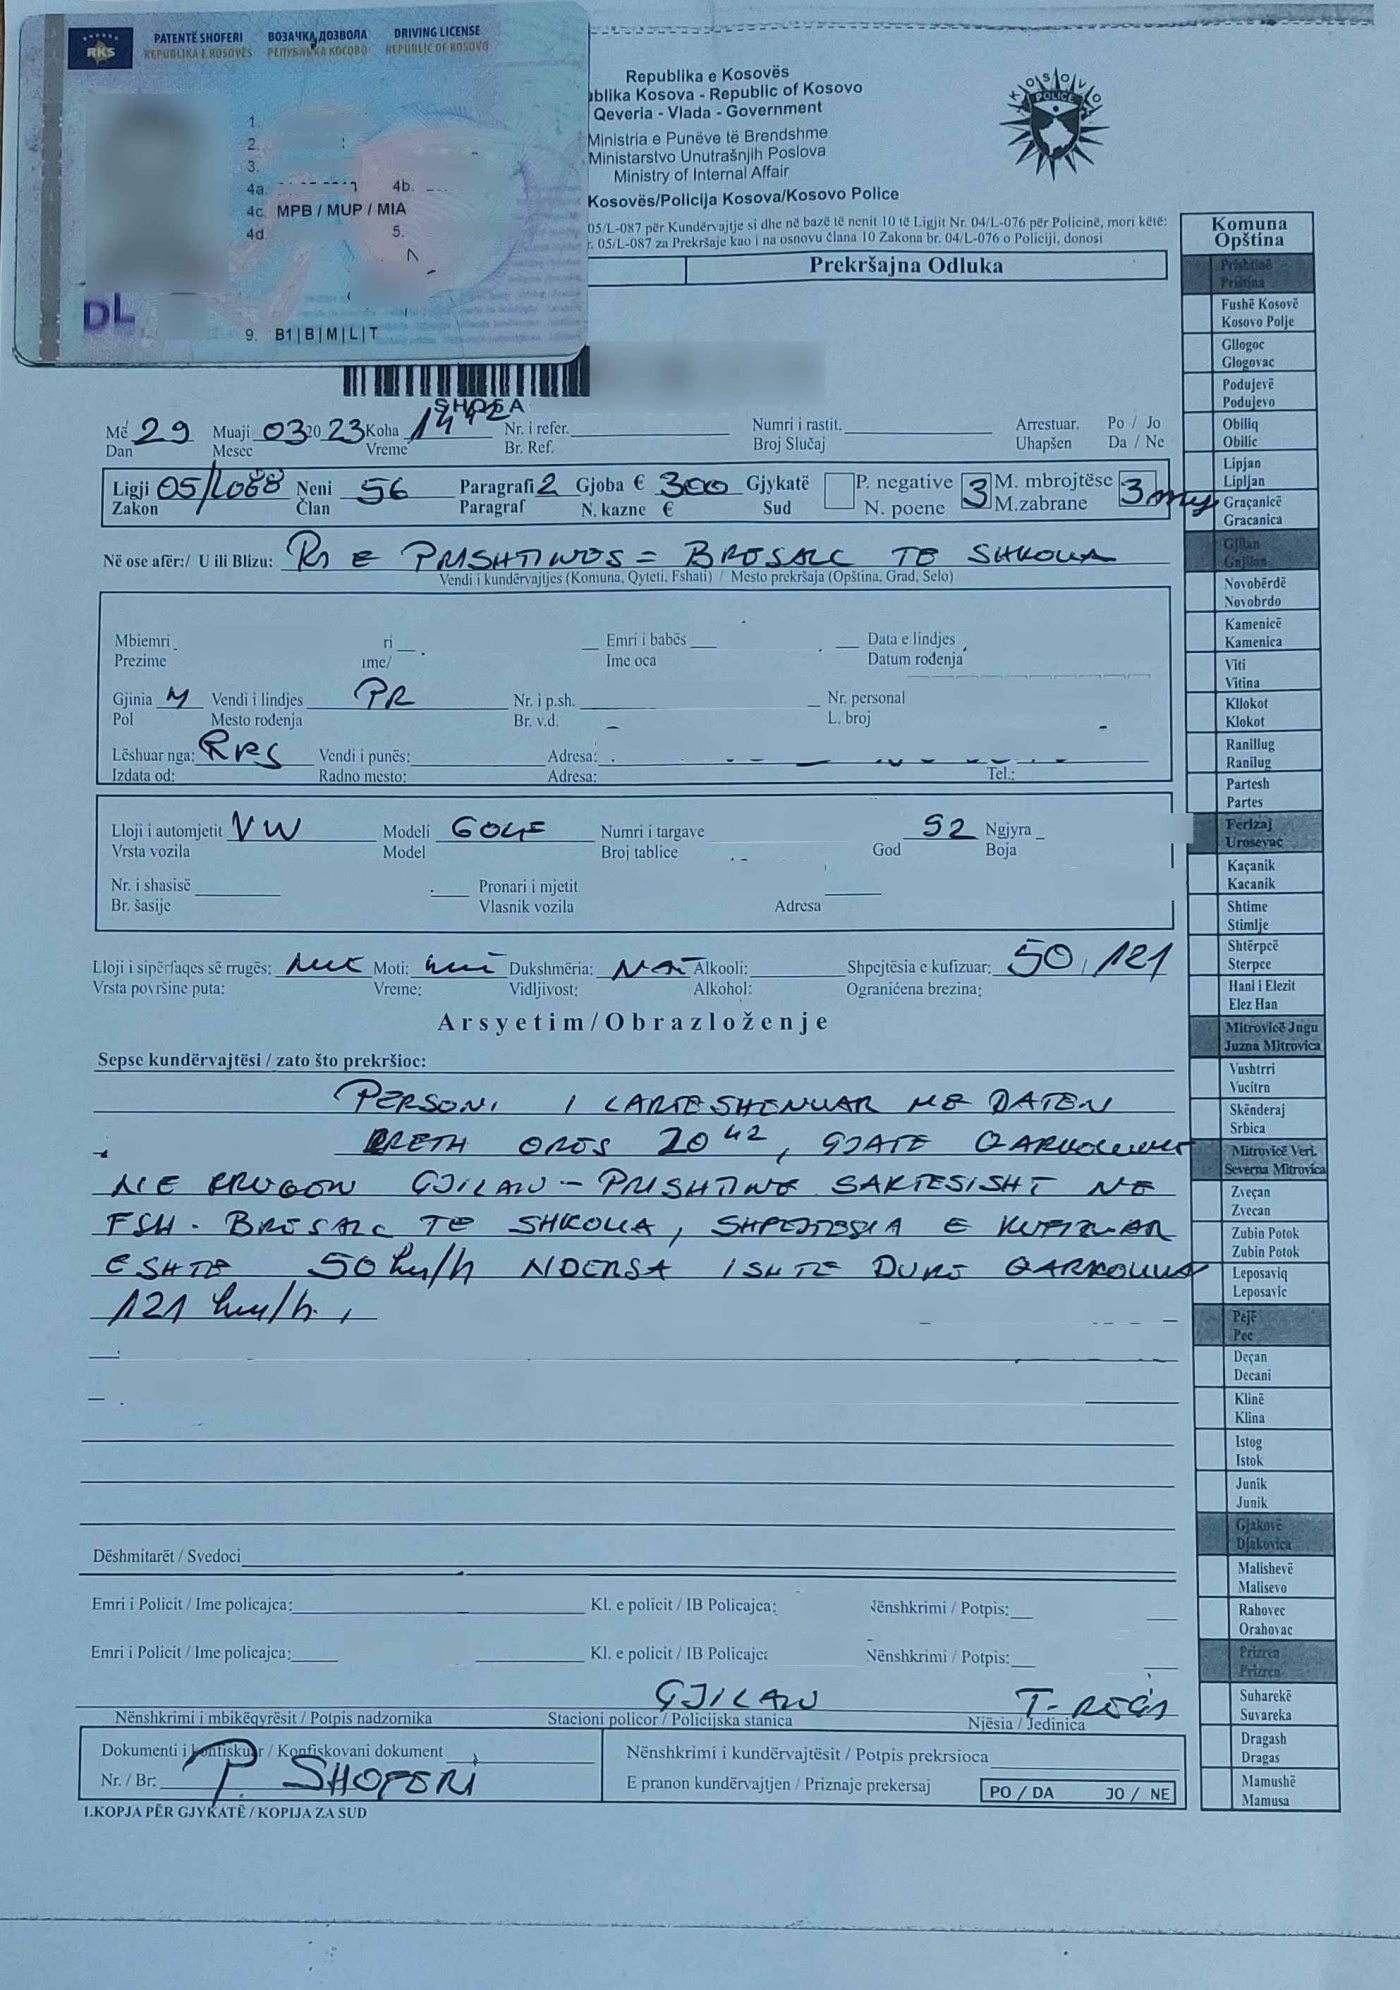 RKS
PATENTË SHOFERI ВОЗАЧКА ДОЗВОЛА DRIVING LICENSE
REPUBLIKA E KOSOVËS РЕПУБЛИКА КОСОВО REPUBLIC OF KOSOVO
1.
2.
3.
4a. 4b.
4c. MPB / MUP / MIA
4d. 5.
DL
9. B1|B|M|L|T
Republika e Kosovës
ublika Kosova - Republic of Kosovo
Qeveria - Vlada - Government
Ministria e Punëve të Brendshme
Ministarstvo Unutrašnjih Poslova
Ministry of Internal Affair
Kosovës/Policija Kosova/Kosovo Police
KOSOVO
POLICE
05/L-087 për Kundërvajtje si dhe në bazë të nenit 10 të Ligjit Nr. 04/L-076 për Policinë, mori këtë:
r. 05/L-087 za Prekršaje kao i na osnovu člana 10 Zakona br. 04/L-076 o Policiji, donosi
Prekršajna Odluka
Më 29 Muaji 03 20 23 Koha Nr. i refer. Numri i rastit. Arrestuar. Po / Jo
Dan Mesec Vreme Br. Ref. Broj Slučaj Uhapšen Da / Ne
Ligji 05/L088 Neni 56 Paragrafi 2 Gjoba € 300 Gjykatë P. negative 3 M. mbrojtëse 3 muj
Zakon Član Paragraf N. kazne € Sud N. poene M.zabrane
Në ose afër:/ U ili Blizu: RR E PRISHTINES = BRESALC TE SHKOLLA
Vendi i kundërvajtjes (Komuna, Qyteti, Fshati) / Mesto prekršaja (Opština, Grad, Selo)
Mbiemri ri Emri i babës Data e lindjes
Prezime ime/ Ime oca Datum rođenja
Gjinia M Vendi i lindjes PR Nr. i p.sh. Nr. personal
Pol Mesto rođenja Br. v.d. L. broj
Lëshuar nga: RKS Vendi i punës: Adresa:
Izdata od: Radno mesto: Adresa: Tel.:
Lloji i automjetit VW Modeli GOLF Numri i targave 92 Ngjyra
Vrsta vozila Model Broj tablice God Boja
Nr. i shasisë Pronari i mjetit
Br. šasije Vlasnik vozila Adresa
Lloji i sipërfaqes së rrugës: Moti: Dukshmëria: Alkooli: Shpejtësia e kufizuar: 50 / 121
Vrsta površine puta: Vreme: Vidljivost: Alkohol: Ograničena brezina:
Arsyetim/Obrazloženje
Sepse kundërvajtësi / zato što prekršioc:
PERSONI I LARTESHENUAR ME DATEN
RRETH ORES 20 42, GJATE QARKULLIMIT
NE RRUGEN GJILAN - PRISHTINE SAKTESISHT NE
FSH. BRESALC TE SHKOLLA, SHPEJTESIA E KUFIZUAR
ESHTE 50 km/h NDERSA ISHTE DUKE QARKULLUAR
121 km/h.
Dëshmitarët / Svedoci
Emri i Policit / Ime policajca: Kl. e policit / IB Policajca: Nënshkrimi / Potpis:
Emri i Policit / Ime policajca: Kl. e policit / IB Policajca Nënshkrimi / Potpis:
GJILAN
Nënshkrimi i mbikëqyrësit / Potpis nadzornika Stacioni policor / Policijska stanica Njësia / Jedinica
Dokumenti i konfiskuar / Konfiskovani dokument
Nr. / Br: P. SHOFERI
Nënshkrimi i kundërvajtësit / Potpis prekrsioca
E pranon kundërvajtjen / Priznaje prekersaj PO / DA JO / NE
1.KOPJA PËR GJYKATË / KOPIJA ZA SUD
Komuna
Opština
Prishtinë
Priština
Fushë Kosovë
Kosovo Polje
Gllogoc
Glogovac
Podujevë
Podujevo
Obiliq
Obilic
Lipjan
Lipljan
Graçanicë
Gracanica
Gjilan
Gnjilan
Novobërdë
Novobrdo
Kamenicë
Kamenica
Viti
Vitina
Kllokot
Klokot
Ranillug
Ranilug
Partesh
Partes
Ferizaj
Urosevac
Kaçanik
Kacanik
Shtime
Stimlje
Shtërpcë
Sterpce
Hani i Elezit
Elez Han
Mitrovicë Jugu
Juzna Mitrovica
Vushtrri
Vucitrn
Skënderaj
Srbica
Mitrovicë Veri.
Severna Mitrovica
Zveçan
Zvecan
Zubin Potok
Zubin Potok
Leposaviq
Leposavic
Pejë
Pec
Deçan
Decani
Klinë
Klina
Istog
Istok
Junik
Junik
Gjakovë
Djakovica
Malishevë
Malisevo
Rahovec
Orahovac
Prizren
Prizren
Suharekë
Suvareka
Dragash
Dragas
Mamushë
Mamusa